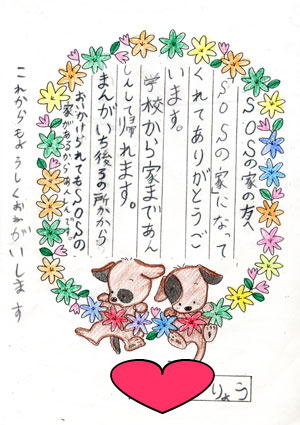 SOSの家の友へ
SOSの家になって
くれてありがとうご
います。
学校から家まであん
しんして帰れます。
まんがいち後ろの所から
おいかけられてもSOSの
家があるからあんしんです
これからもよろしくおねがいします
りょう